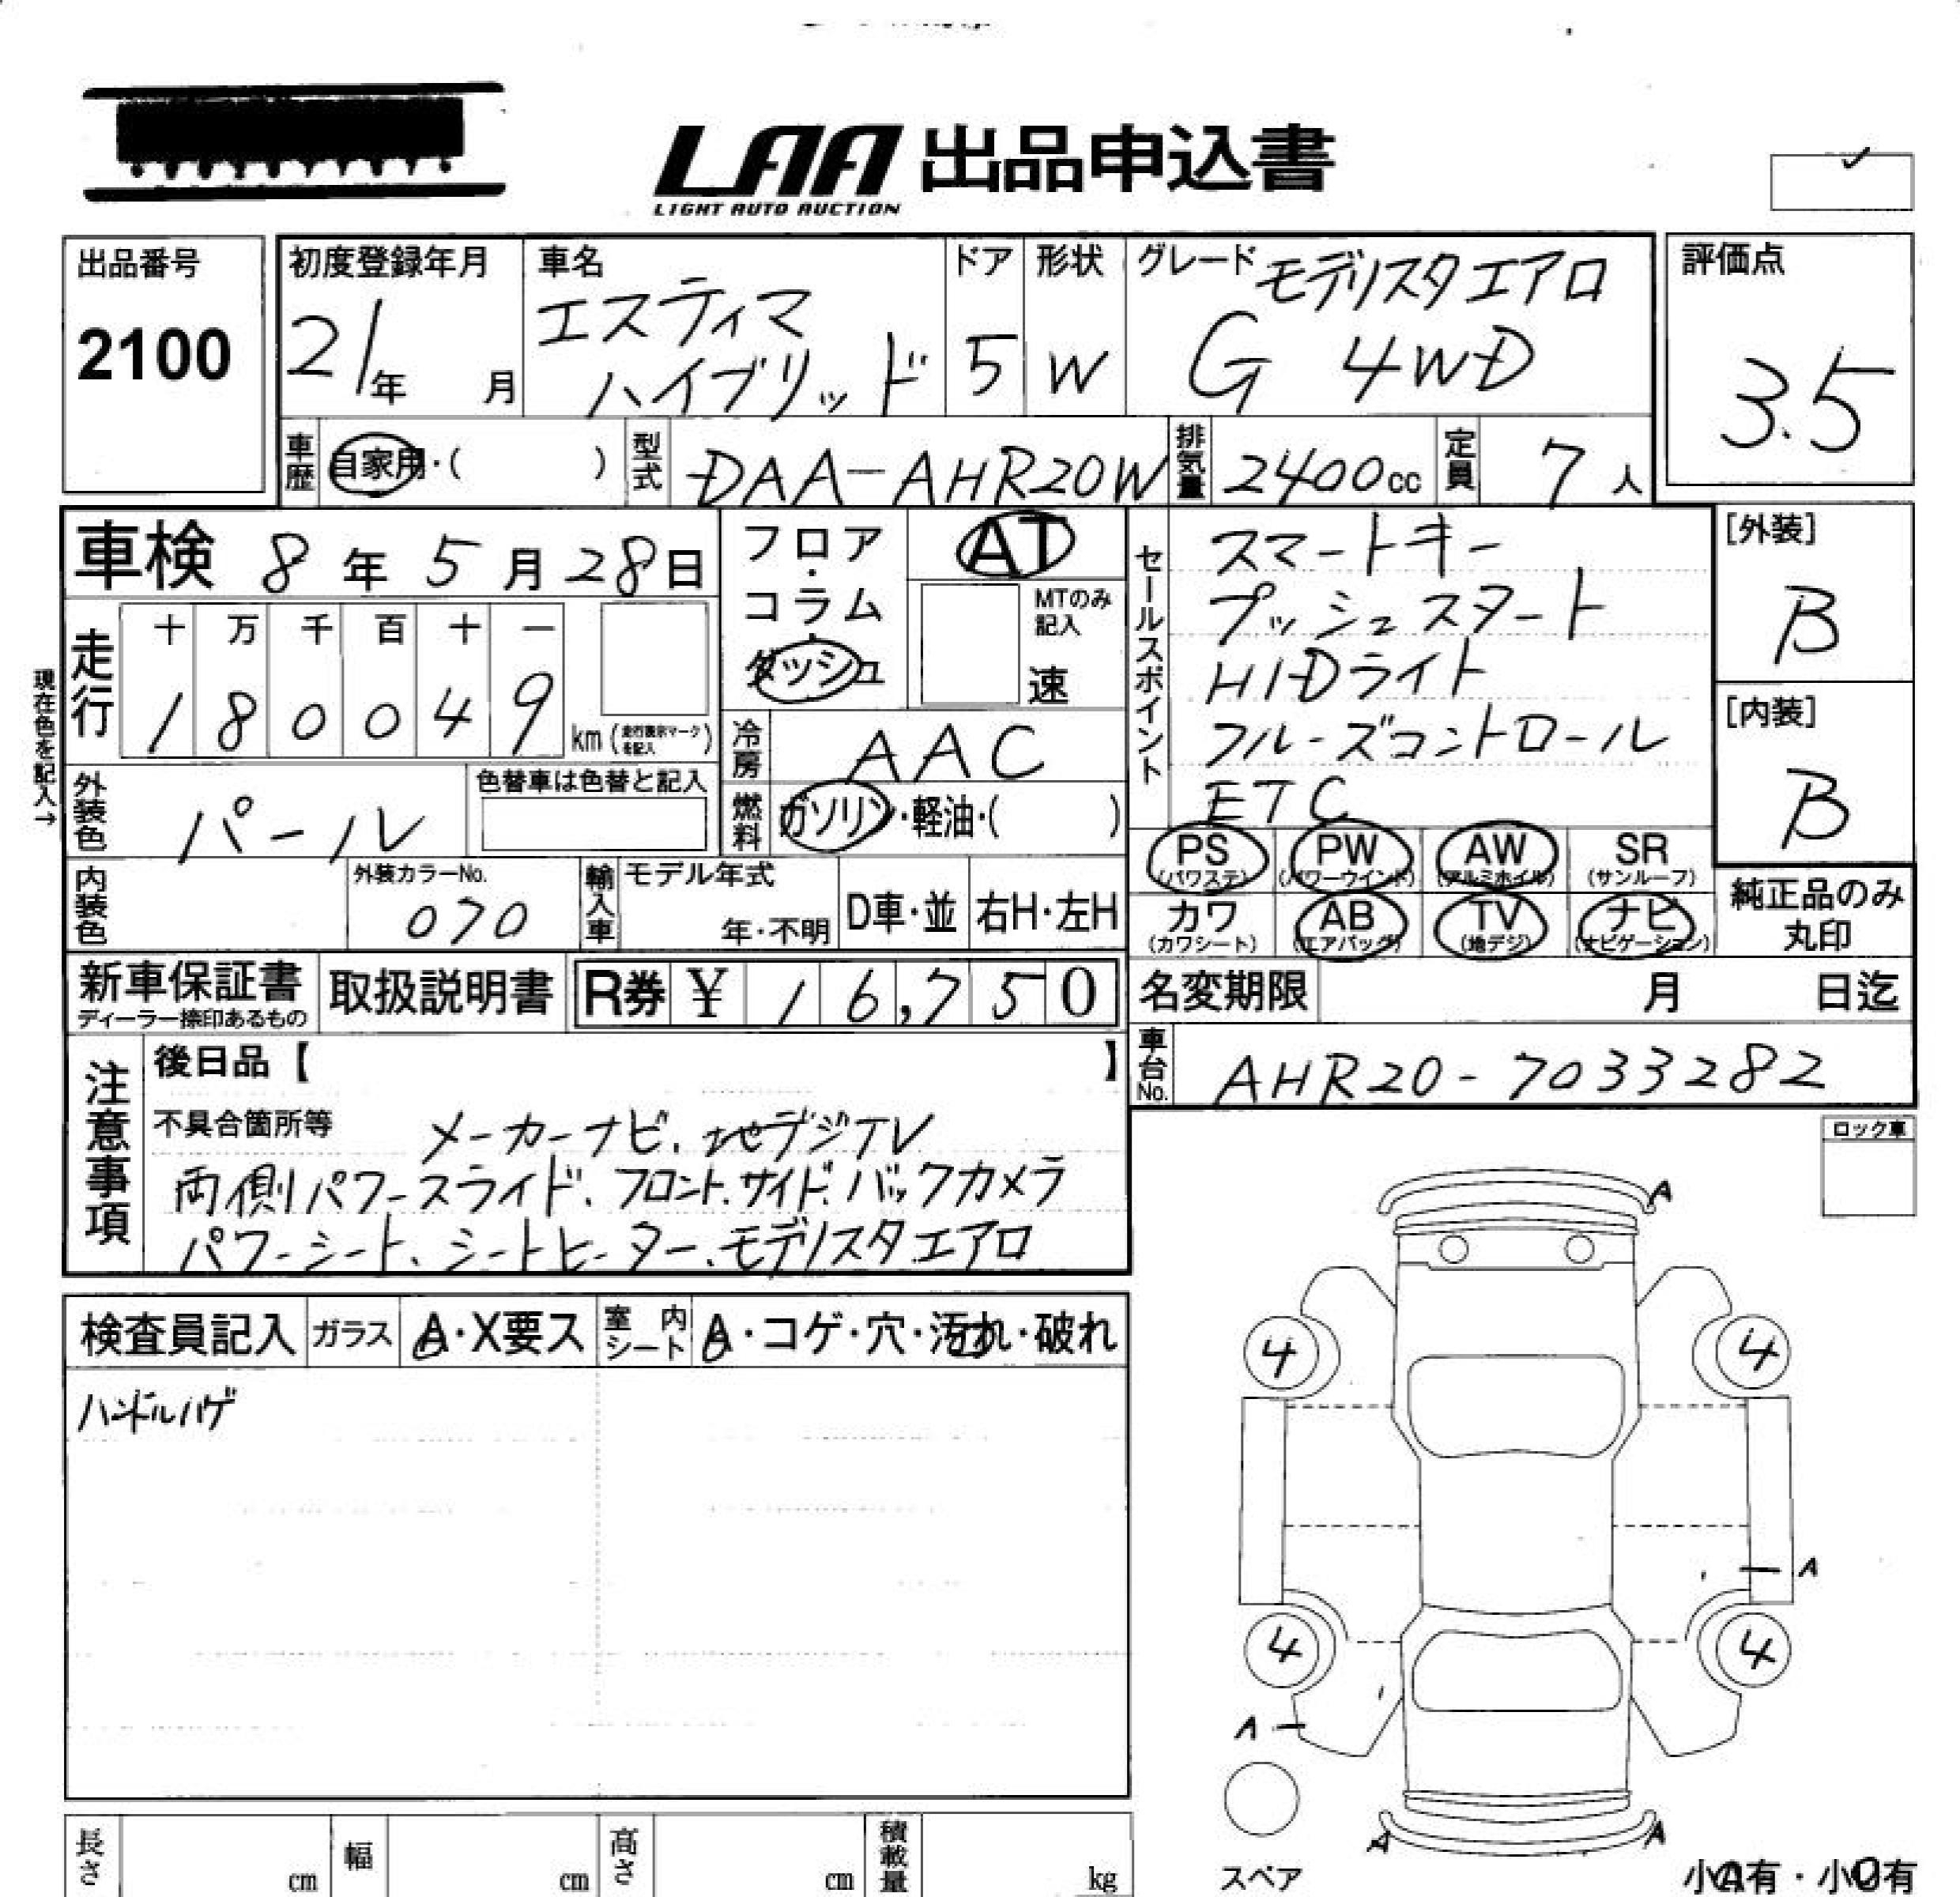 LAA 出品申込書
LIGHT AUTO AUCTION
出品番号
2100
初度登録年月
21年 月
車名
エスティマ
ハイブリッド
ドア
5
形状
W
グレード モデリスタエアロ
G 4WD
評価点
3.5
車歴 自家用・( )
型式 DAA-AHR20W
排気量 2400cc
定員 7人
車検 8年5月28日
フロア・
コラム・
ダッシュ
AT
MTのみ
記入
速
セールスポイント
スマートキー
プッシュスタート
HIDライト
クルーズコントロール
ETC
[外装]
B
[内装]
B
現在色を記入→
走行
十 万 千 百 十 一
1 8 0 0 4 9
km(走行表示マークを記入)
冷房 AAC
外装色 パール
色替車は色替と記入
燃料 ガソリン・軽油・( )
PS (パワステ)
PW (パワーウインド)
AW (アルミホイル)
SR (サンルーフ)
カワ (カワシート)
AB (エアバッグ)
TV (地デジ)
ナビ (ナビゲーション)
純正品のみ
丸印
内装色
外装カラーNo.
070
輸入車
モデル年式
年・不明
D車・並
右H・左H
新車保証書
ディーラー捺印あるもの
取扱説明書
R券 ¥ 16,750
名変期限 月 日迄
車台No. AHR20-7033282
注意事項
後日品【 】
不具合箇所等 メーカーナビ、地デジTV
両側パワースライド、フロント、サイド、バックカメラ
パワーシート、シートヒーター、モデリスタエアロ
ロック車
検査員記入
ガラス
A・X要ス
室内シート
A・コゲ・穴・汚れ・破れ
ハンドルハゲ
A
4 4
A
4 4
A
スペア
A A
長さ cm
幅 cm
高さ cm
積載量 kg
小A有・小U有